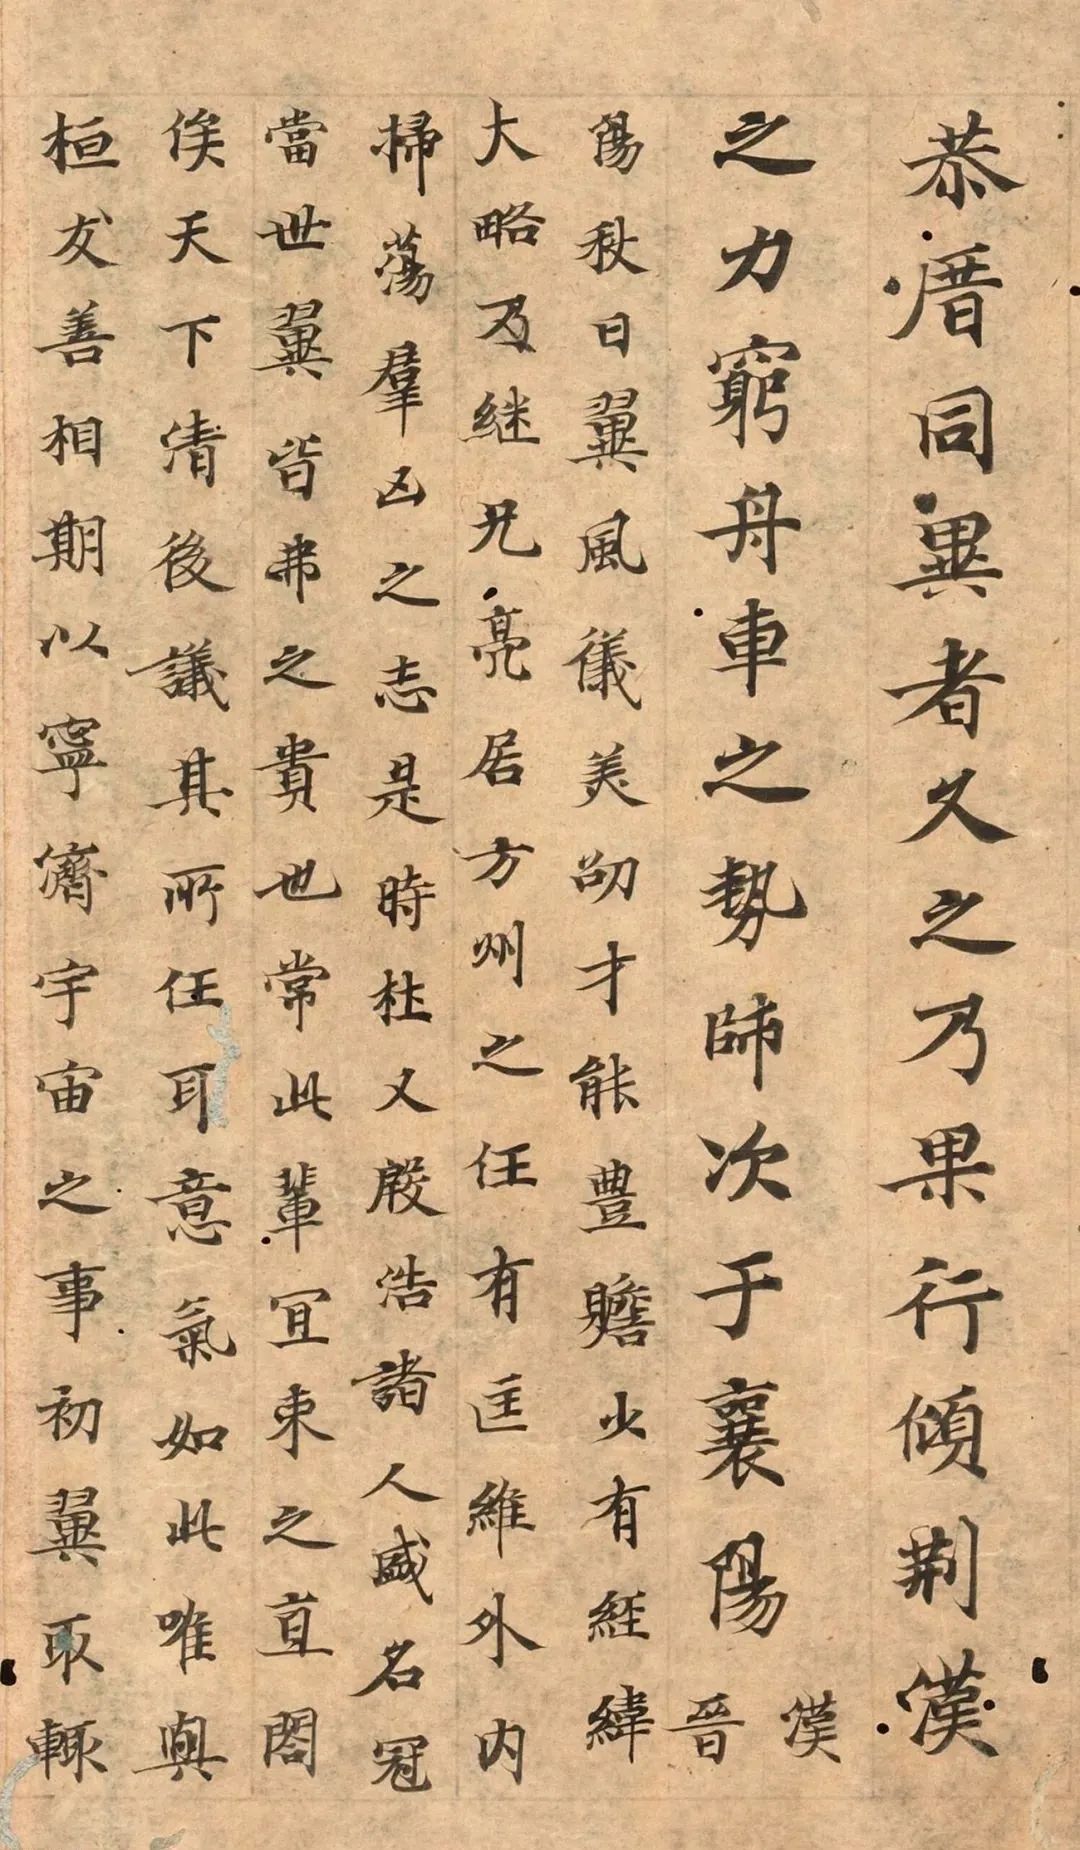 恭厝同異者久之乃果行傾荊漢
之力窮舟車之勢師次于襄陽漢晉
陽秋曰翼風儀美劭才能豊贍少有經緯
大略及継兄亮居方州之任有匡維外内
掃蕩羣凶之志是時杜乂殷浩諸人盛名冠
當世翼皆弗之貴也常此輩冝束之直閣
俟天下清後議其所任耳意氣如此唯與
桓友善相期以寧濟宇宙之事初翼取輙